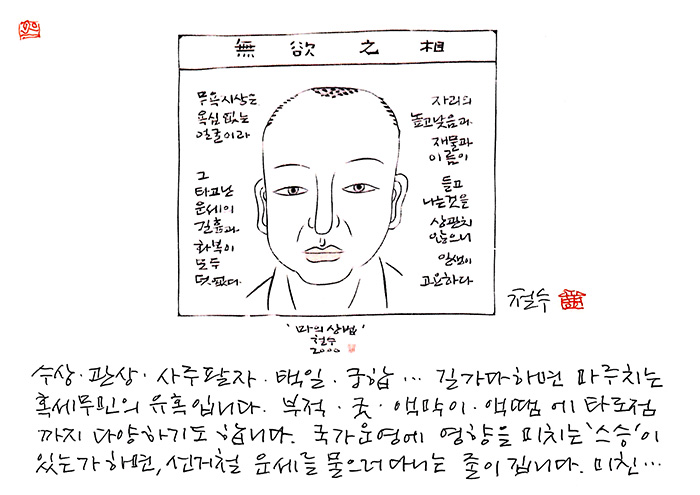 無欲之相
무욕지상은
욕심 없는
얼굴이라
그
타고난
운세의
길흉과
화복이
모두
덧없다.
자리의
높고 낮음과
재물과
이름이
들고
나는 것을
상관치
않으니
일생이
고요하다
철수
'마의상법'
철수
2000
수상·관상·사주팔자·택일·궁합… 길가다 하면 마주치는
혹세무민의 유혹입니다. 부적·굿·액막이·액땜에 타로점
까지 다양하기도 합니다. 국가운영에 영향을 미치는 '스승'이
있는가 하면, 선거철 운세를 물으러 다니는 줄이 깁니다. 미친…